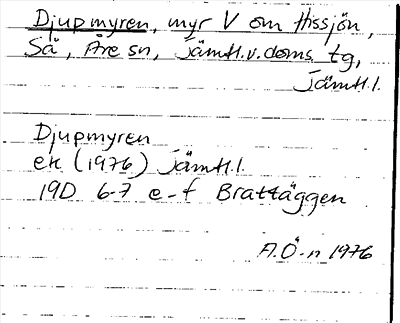 Djupmyren, myr V om Hissjön,
Sä, Åre sn, Jämtl.v.doms. tg,
Jämtl.l.
Djupmyren
ek (1976) Jämtl.l.
19D 6-7 e-f Brattäggen
A.Ö-n 1976